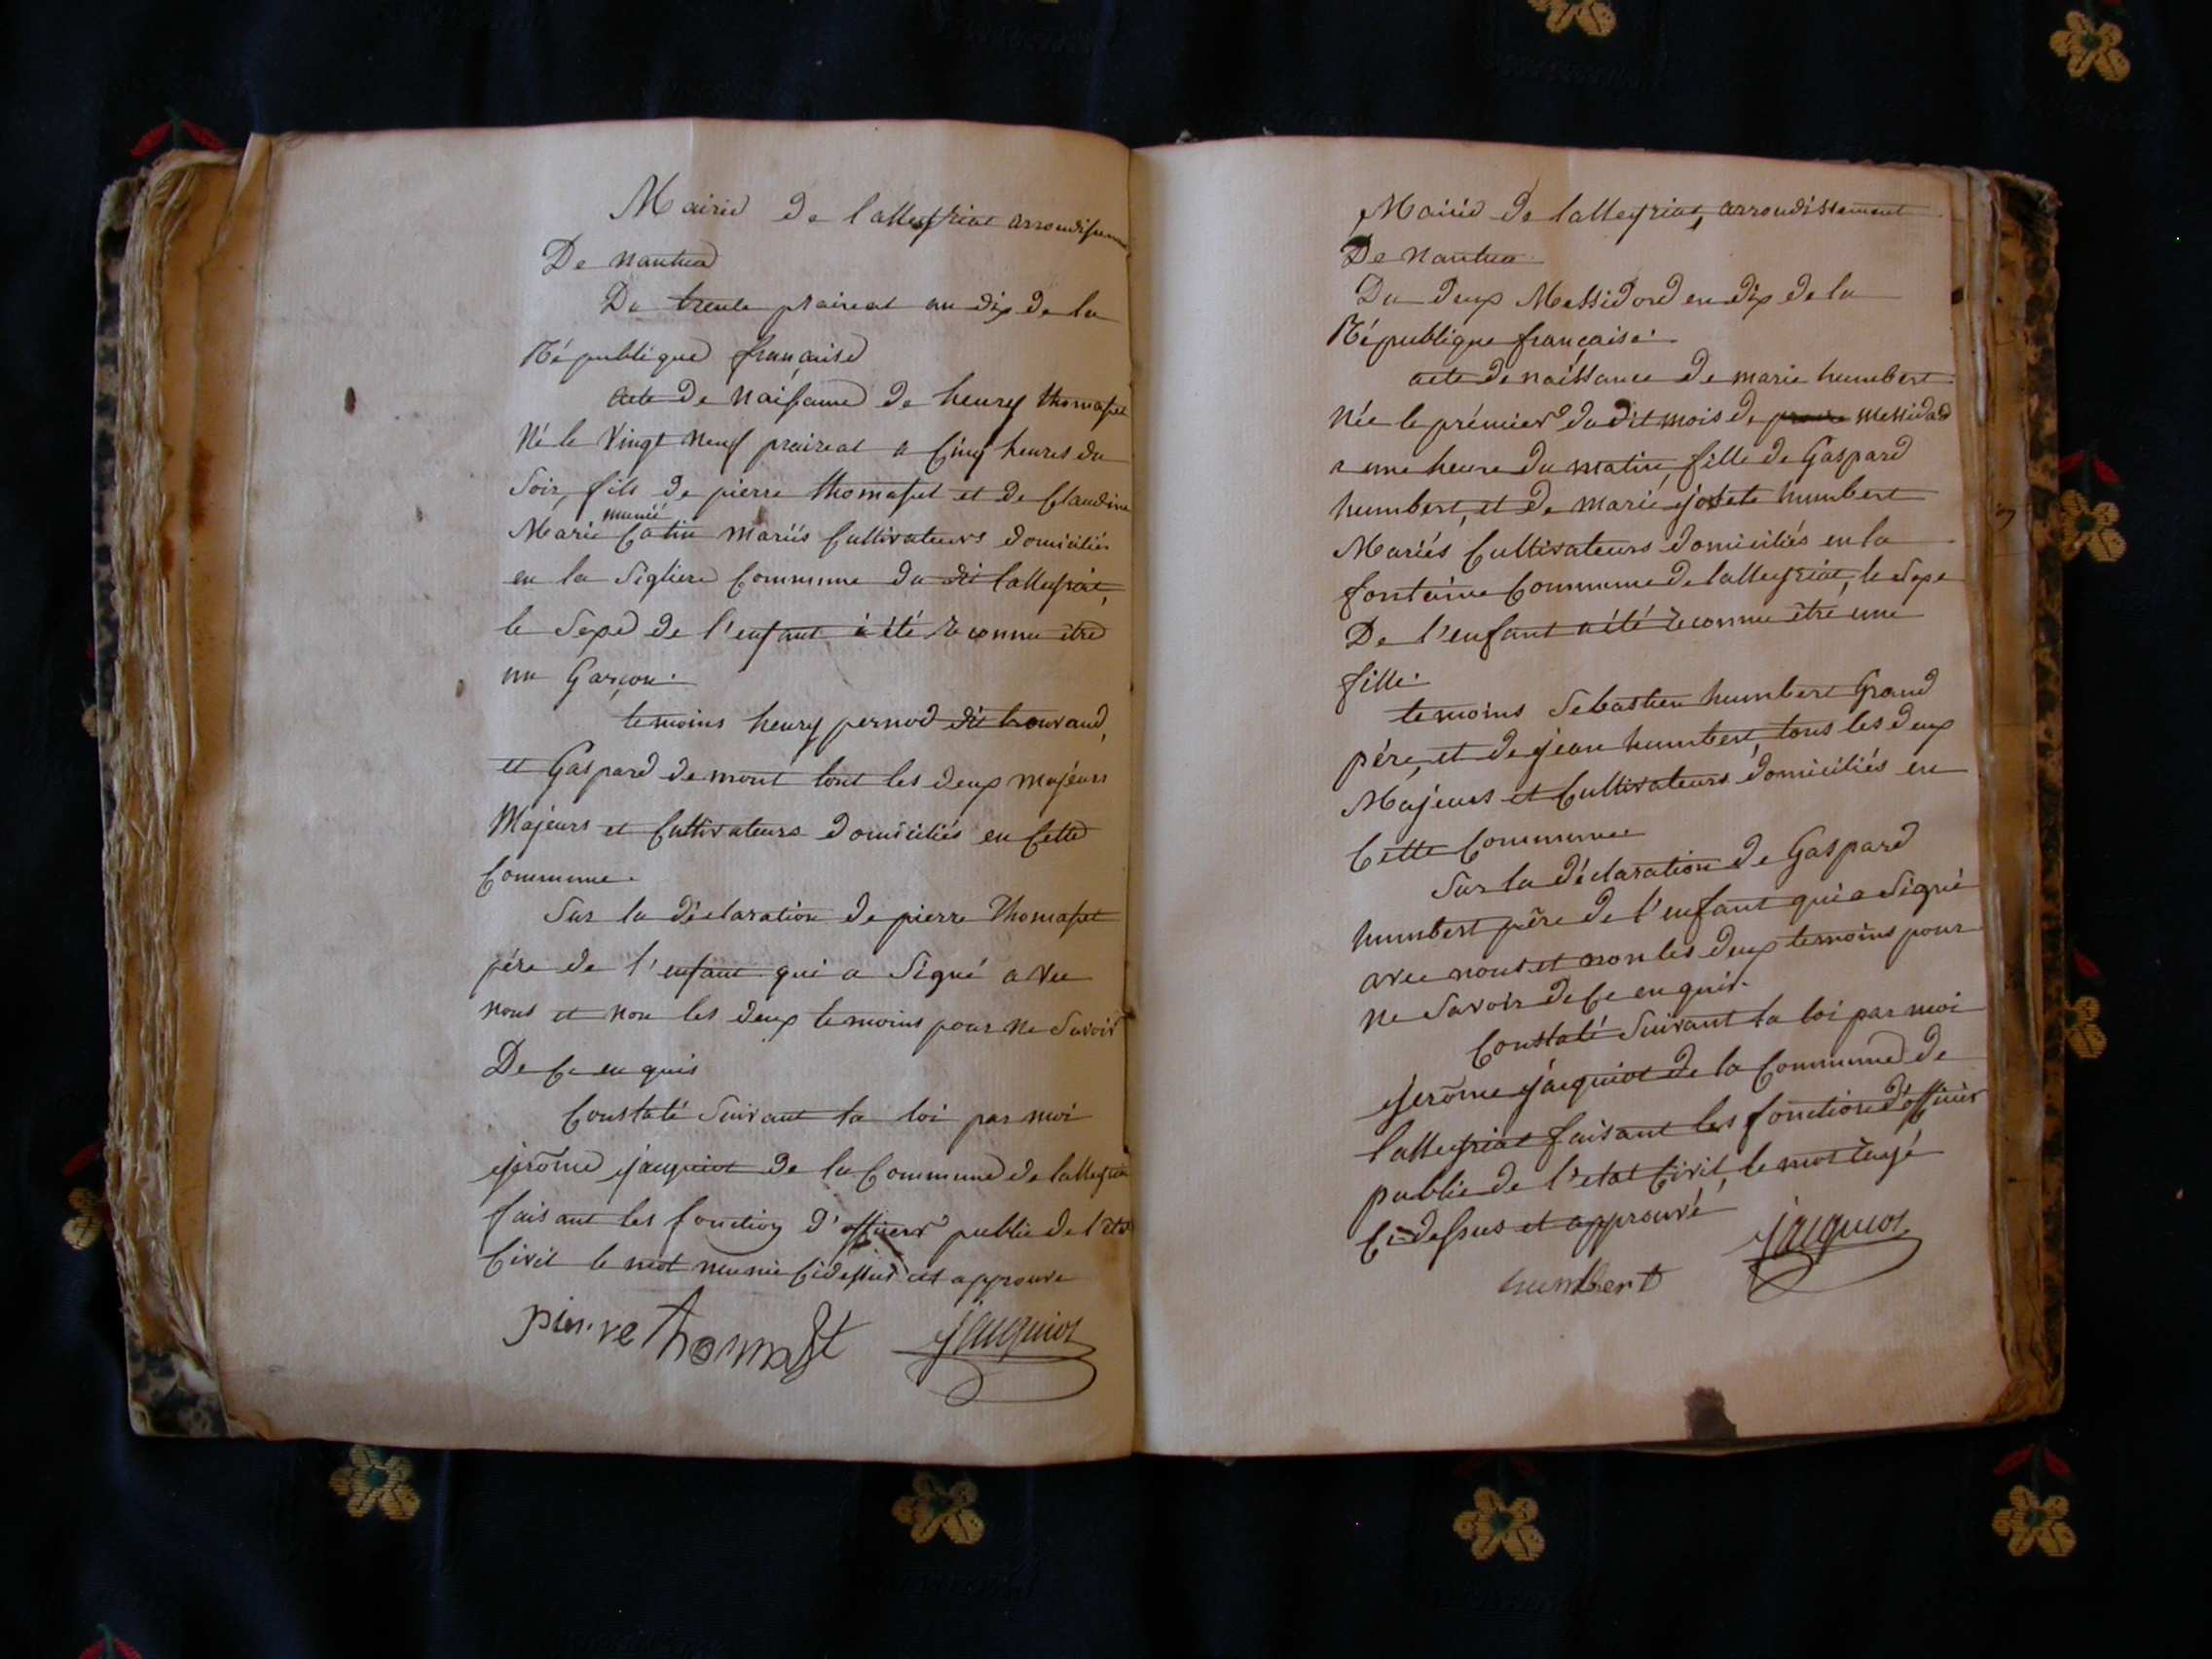 Mairie de lalleyriat arrondissem
De nantua
Du trente prairial an dix de la
République française
acte de Naissance de henry thomasset
Né le Vingt neuf prairial a Cinq heures du
Soir, fils de pierre thomasset et de Claudine
munié
Marie Catin mariés Cultivateurs domiciliés
en la Sigliere Commune du dit lalleyriat,
le Sexe de l'enfant à été reconnu être
un Garçon.
temoins henry pernod dit
et Gaspard demont tout les deux majeurs
Majeurs et Cultivateurs domiciliés en Cette
Commune.
Sur la déclaration de pierre Thomasset
pére de l'enfant qui a Signé avec
nous et non les deux temoins pour ne Savoir
De Ce enquis
Constaté Suivant la loi par moi
jerôme jacquiot de la Commune de lalleyriat
faisant les fonction d'officier public de l'etat
Civil le mot munié Cidessus est approuvé
pierre thomasset jacquiot
Mairie de lalleyriat, arrondissement
De Nantua
Du deux Messidord en dix de la
République française.
acte de naissance de marie humbert
Née le prémier du dit mois de messidord
a une heure du matin fille de Gaspard
humbert, et de marie josete humbert
Mariés Cultivateurs domiciliés en la
fontaine Commune de lalleyriat, le Sexe
De l'enfant a été reconnu être une
fille.
temoins Sebastien humbert Grand
pére, et de jean humbert, tous les deux
Majeurs et Cultivateurs domiciliés en
Cette Commune
Sur la déclaration de Gaspard
humbert pêre de l'enfant qui a Signé
avec nous et non les deux temoins pour
ne Savoir de Ce enquis.
Constaté Suivant la loi par moi
jerôme jacquiot de la Commune de
lalleyriat faisant les fonction d'officier
public de l'etat Civil, le mot rayé
Ci-dessus et approuvé
humbert jacquiot